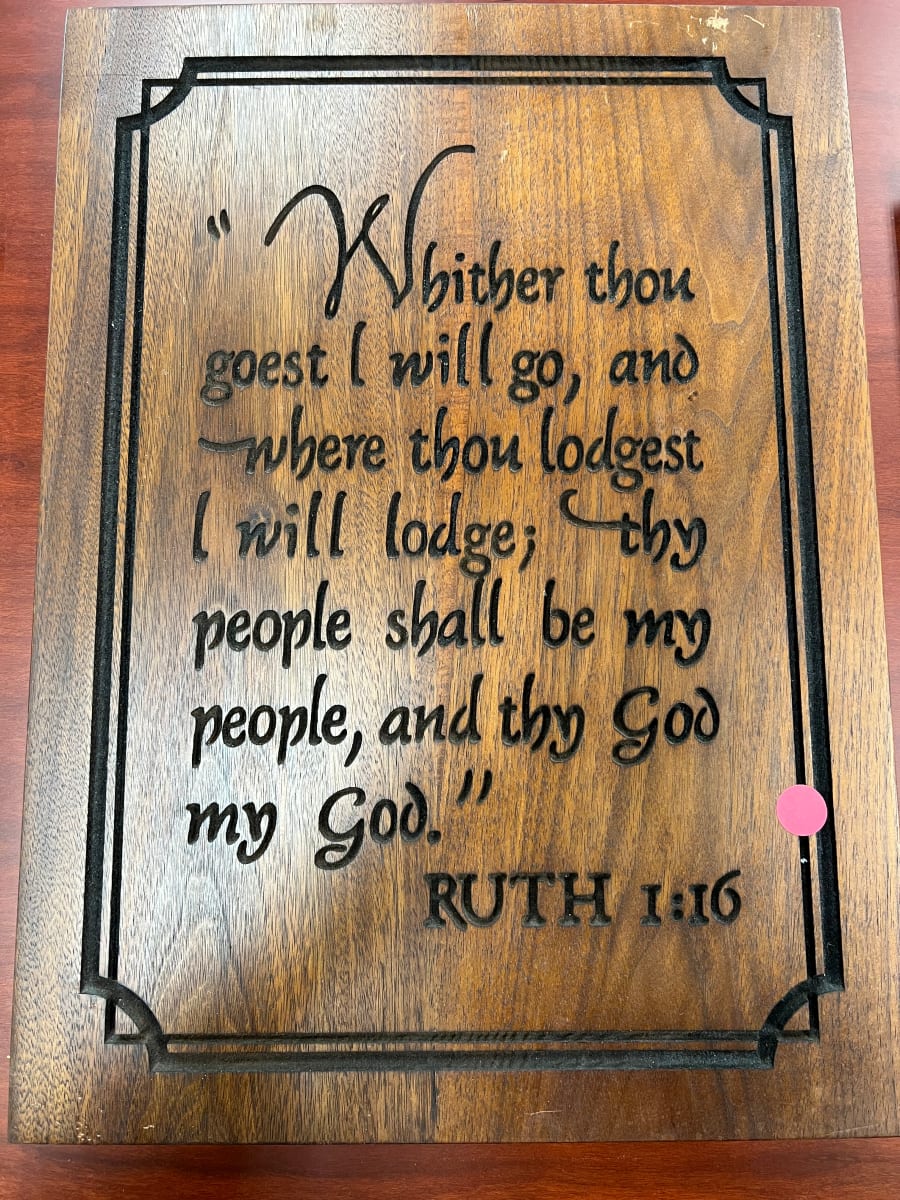 "Whither thou
goest I will go, and
where thou lodgest
I will lodge; thy
people shall be my
people, and thy God
my God."
RUTH 1:16